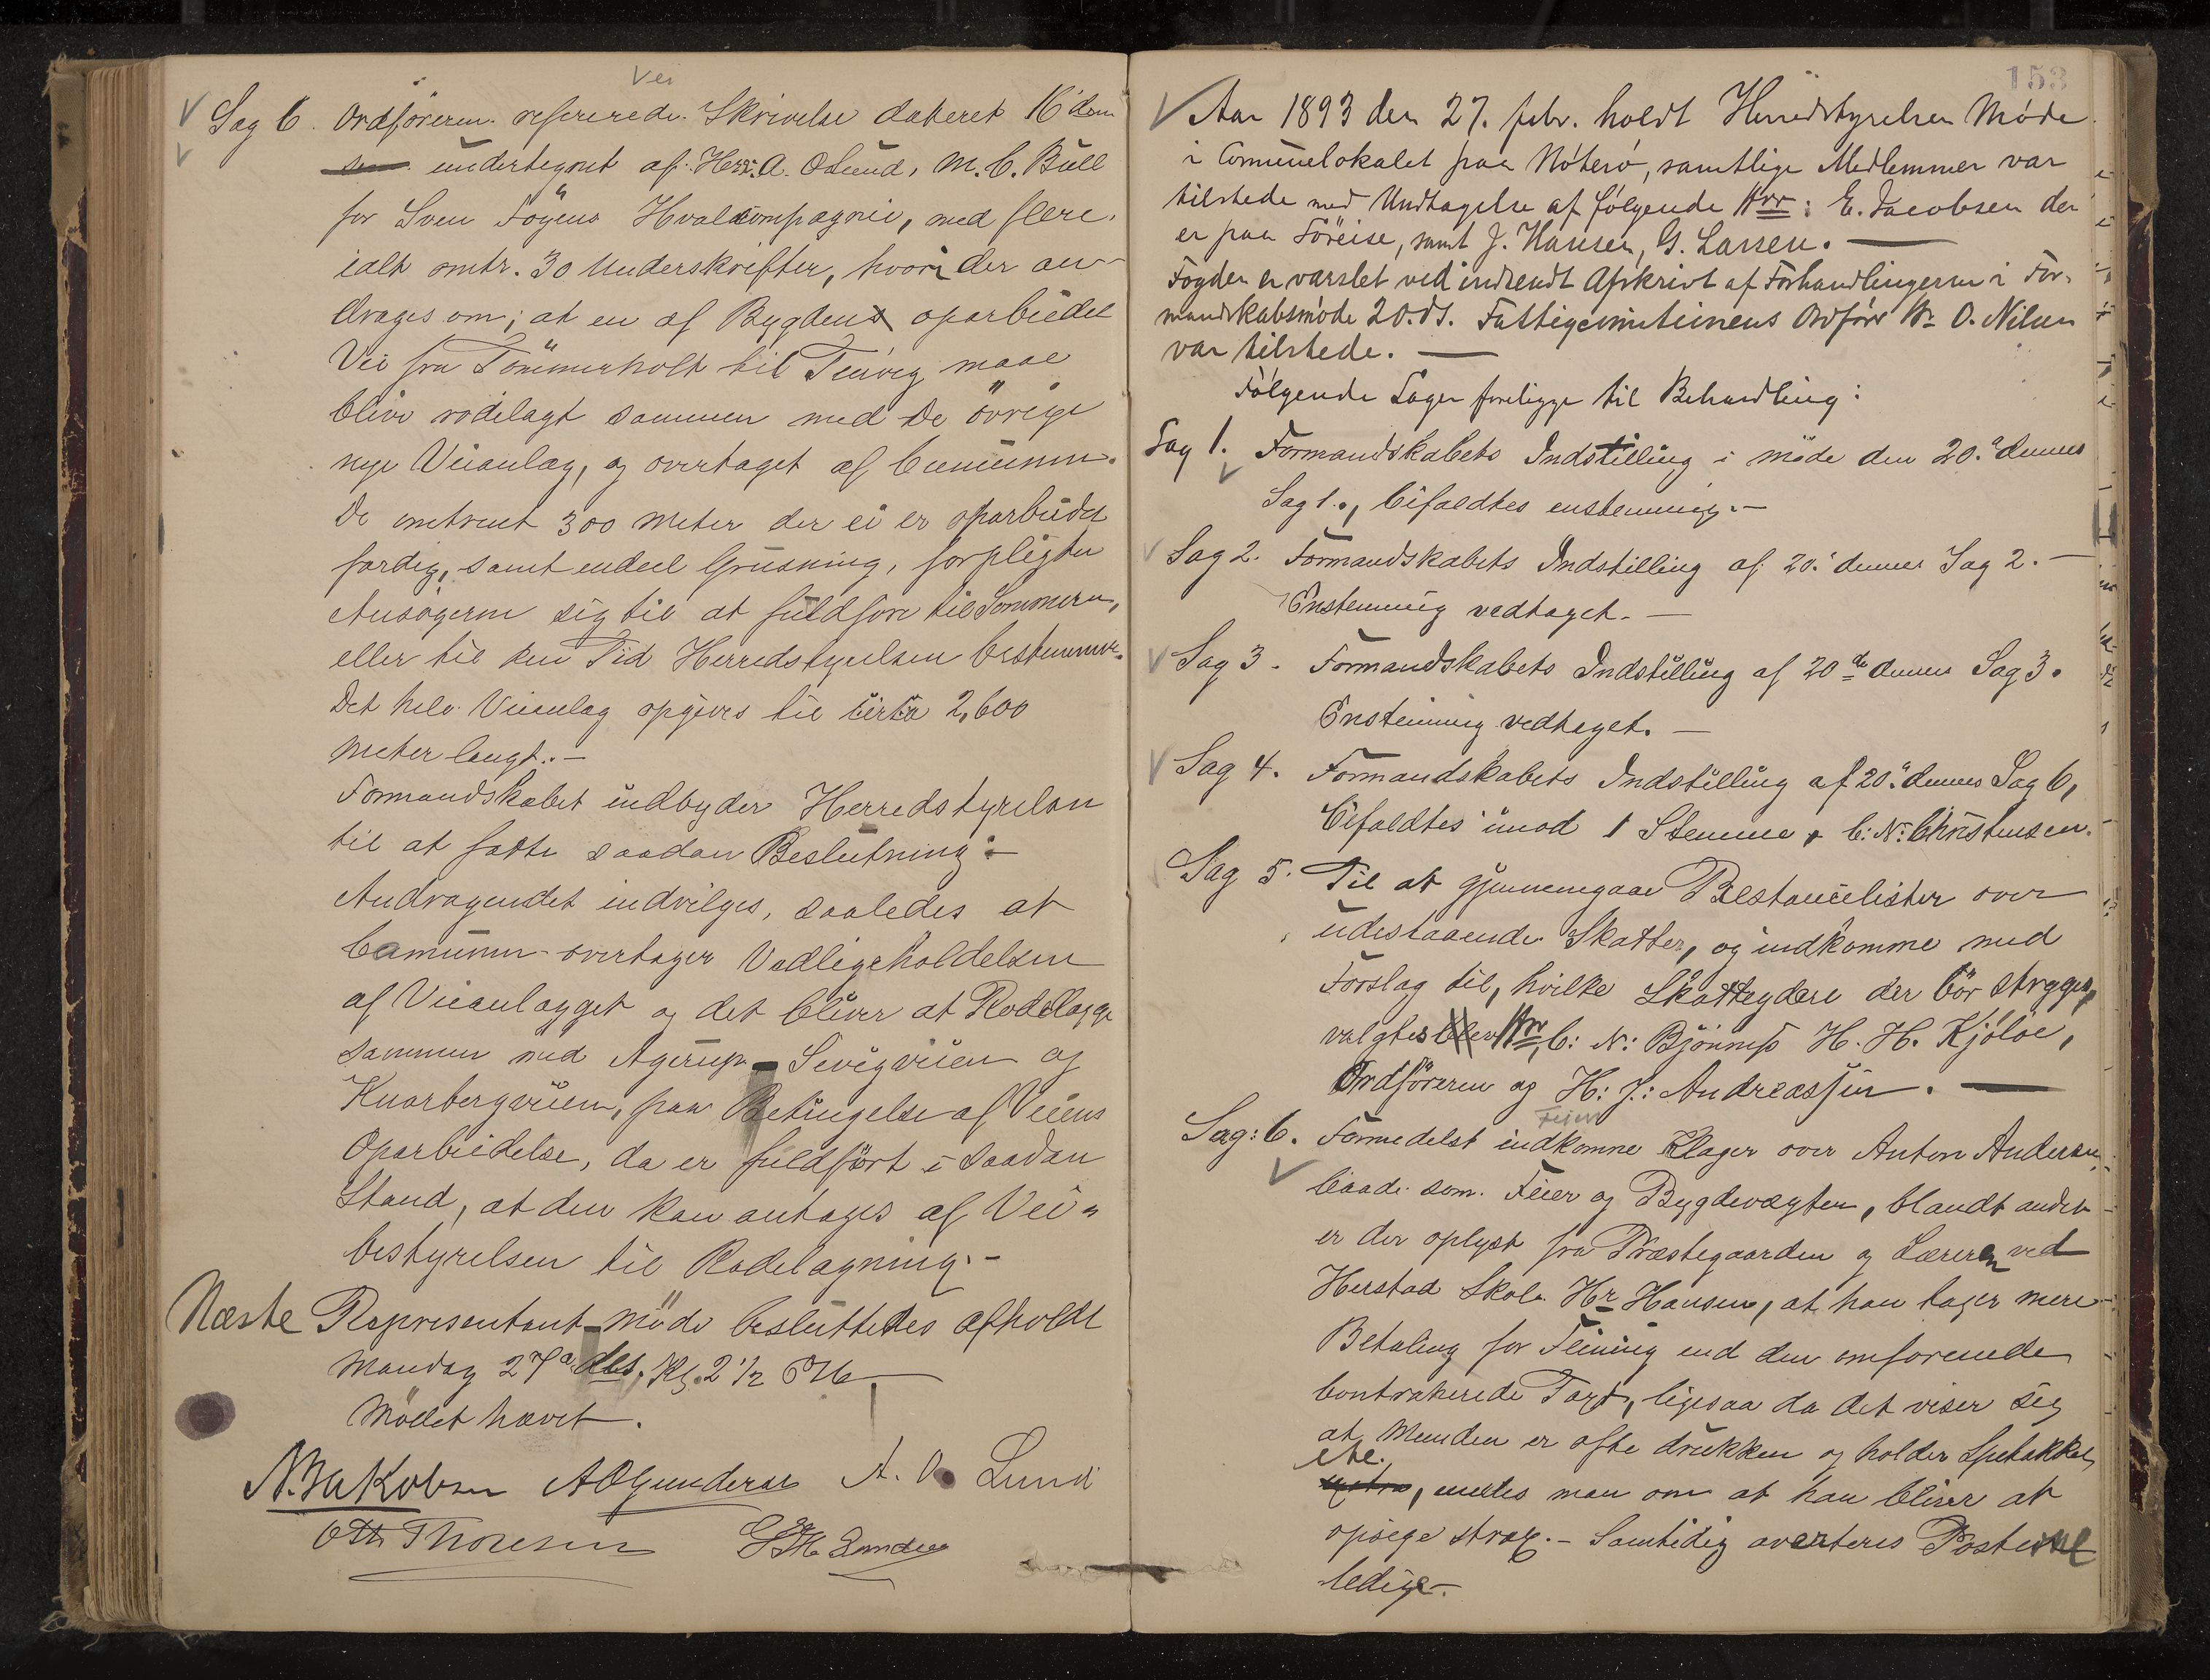 Vei
Sag 6. Ordföreren refererede Skrivelse dateret 16de dem
undertegnet af Herr. A. O Lund, M. C. Bull
for Sven Foyens Hvalcompagnie, med flere,
ialt omtr. 30 Underskrifter, hvori der an-
drages om; at en af Bygden oparbeidet
Vei fra Tömmerholt til Teiivig maae
blive rodelagt sammen med De övrige
nye Veianlæg, og overtaget af Communen.
De omtrent 300 Meter der ei er oparbeidet
færdig, samt endeel Grusning, forpligter
Ansögerne sig til at fuldföre til Sommeren,
eller til den Tid Herredstyrelsen bestemmer.
Det hele Veianlæg opgives til cirka 2,600
Meter langt. -
Formandskabet indbyder Herredstyrelsen
til at fatte saadan Beslutning: -
Andragendet indvilges, saaledes at
Comunen overtager Vedligeholdelsen
af Veianlægget og det bliver at Rodelægge
sammen med Agerup - Sevigveien og
Knarbergveien, paa Betingelse af Veiens
Oparbeidelse, da er fuldfört i saadan
Stand, at den kan antages af Vei =
bestyrelsen til Rodelægning. -
Næste Representant-möde besluttedes afholdt
Mandag 27de ds. Kl. 2 1/2 EM
Mödet hævet.
N. Jakobsen A O Gundersen A. O. Lund
Otto Thoresen
153
Aar 1893 den 27. febr. holdt Herredstyrelsen Møde
i Comunelokalet paa Nøterø, samtlige Medlemmer var
tilstede med Undtagelse af følgende Hrr: E. Jacobsen der
er paa Söreise, samt J. Hansen, G. Larsen. -
Fogden er varslet ved indsendt Afskrivt af Forhandlingerne i For-
mandskabsmøde 20. ds. Fattigcomitionens Ordfører Hr O. Nilsen
var tilstede. -
Følgende Sager foreligge til Behandling:
Sag 1. Formandskabets Indstilling i möde den 20. dennes
Sag 1., bifaldtes enstemmig. -
Sag 2. Formandskabets Indstilling af 20. dennes Sag 2. -
Enstemmig vedtaget. -
Sag 3. Formandskabets Indstilling af 20de dennes Sag 3.
Enstemmig vedtaget. -
Sag 4. Formandskabets Indstilling af 20. dennes Sag 6,
bifaldtes imod 1 Stemme, C. N. Christensen.
Sag 5. Til at gjennemgaae Restancelister over
udestaaende Skatter, og indkomme med
Forslag til, hvilke Skatteydere der bör stryges,
valgtes blev Hrr, C: N: Bjönness H. H. Kjölöe,
Ordföreren og H: J: Andreassen. -
Feier
Sag: 6. Formedelst indkomne Klager over Anton Andersen,
baade som Feier og Bygdevægter, blandt andet
er der oplyst fra Præstegaarden og Læreren ved
Herstad Skole Hr Hansen, at han tager mere
Betaling for Feining end den omforenede
Contrakerede Taxt, ligesaa da det viser sig
at Manden er ofte drukken og holder Spetakkel,
etc.
enedes man om at han bliver at
opsige strax. - Samtidig averteres Posterne
ledige. -